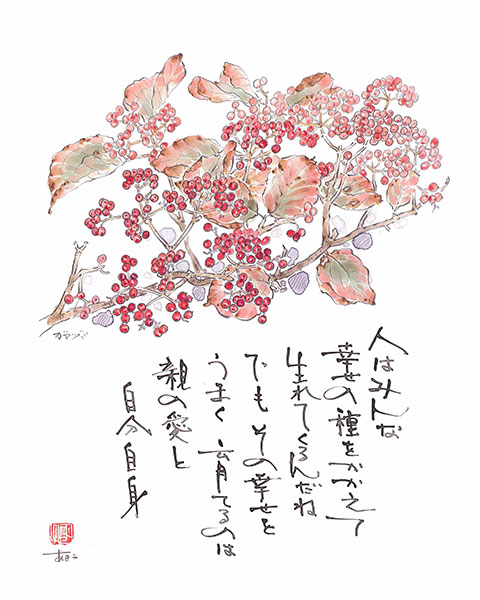 ガマズミ
人はみんな
幸せの種をかかえて
生れてくるんだね
でもその幸せを
うまく育てるのは
親の愛と
自分自身